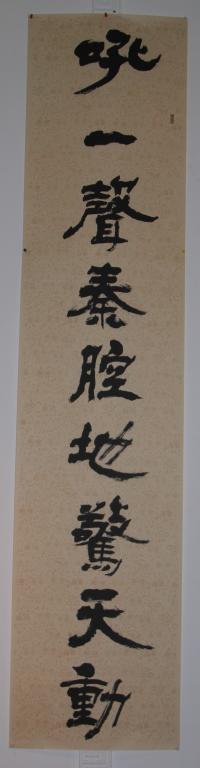 吼一聲秦腔地驚天動